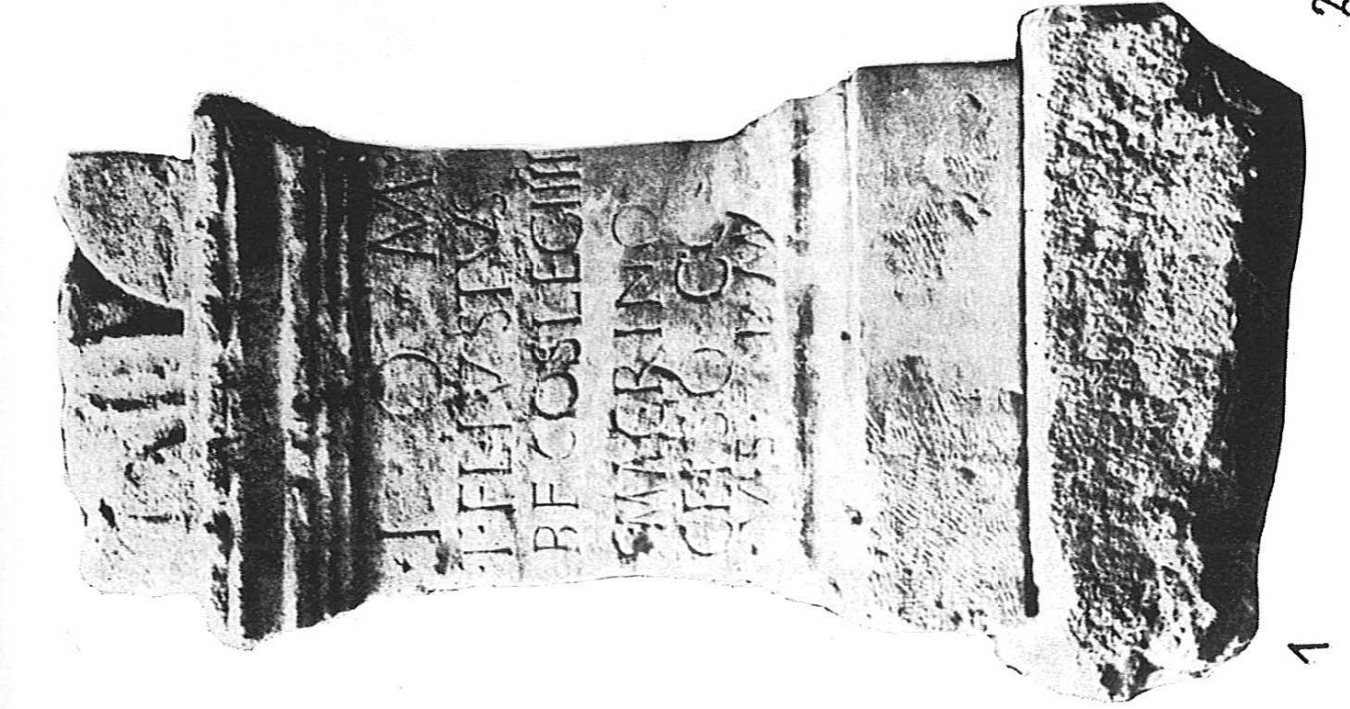 I O M
T·FL·IVSTVS
BF COS LEG IIII
MACRINO
CELSO CO
1